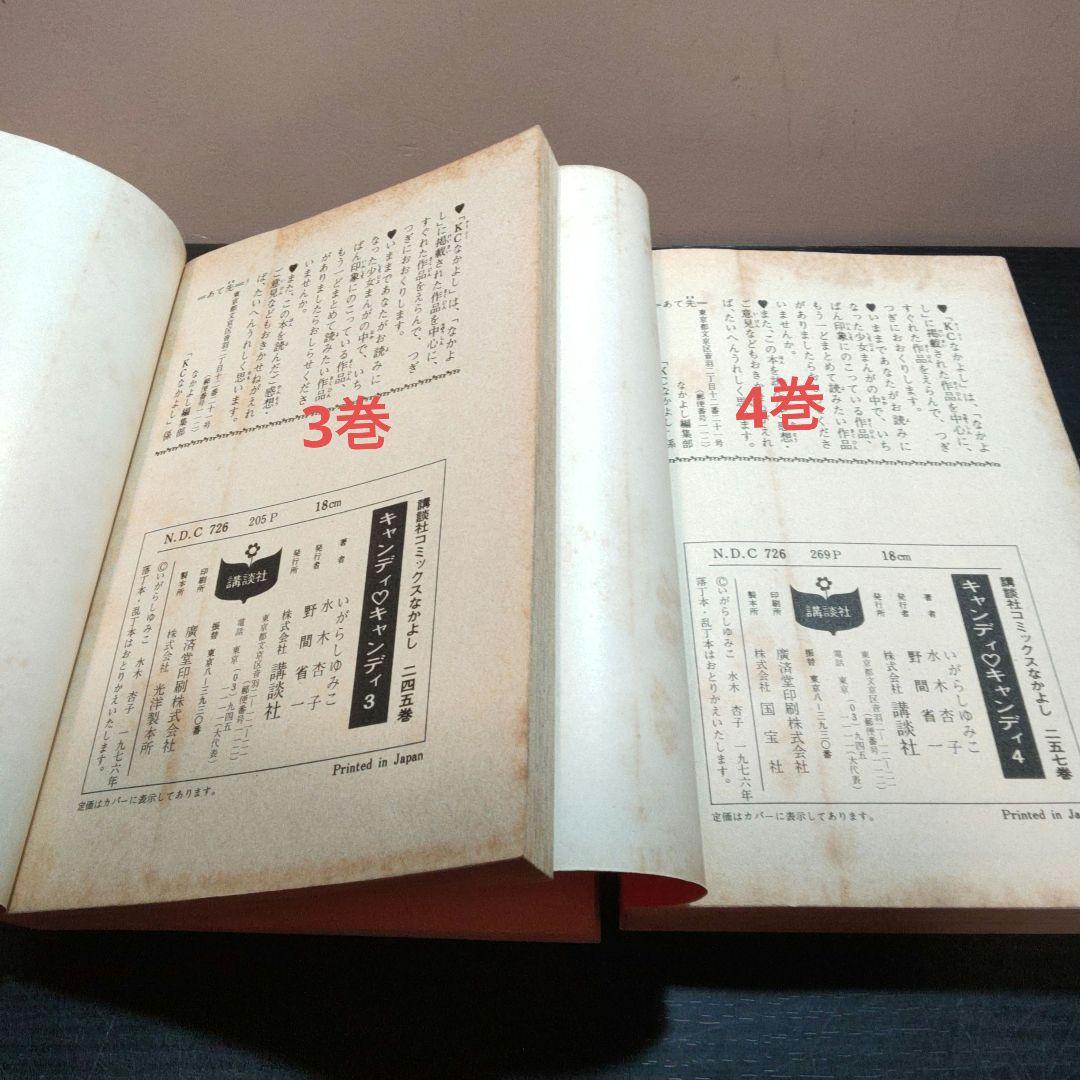 ♥「KCなかよし」は、「なかよ
し」に掲載された作品を中心に、
すぐれた作品をえらんで、つぎ
つぎにおおくりします。
♥いままであなたがお読みに
なった少女まんがの中で、いち
ばん印象にのこっている作品、
もう一どまとめて読みたい作品
がありましたらおしらせくださ
いませんか。
♥また、この本を読んだご感想・
ご意見などもおきかせねがえれ
ば、たいへんうれしく思います。
―あて先―
東京都文京区音羽二丁目十二番二十一号
(郵便番号一一二)
なかよし編集部
「KCなかよし」係
3巻
講談社コミックスなかよし 二四五巻
キャンディ♡キャンディ 3
著者 いがらしゆみこ
水木杏子
発行者 野間省一
発行所 株式会社 講談社
東京都文京区音羽二―一二―二一
(郵便番号一一二)
電話 東京(03)九四五―一一一一(大代表)
振替 東京八―三九三〇番
講談社
印刷所 廣済堂印刷株式会社
製本所 株式会社 光洋製本所
©いがらしゆみこ 水木 杏子 一九七六年
落丁本・乱丁本はおとりかえいたします。
N.D.C 726 205P 18cm
Printed in Japan
定価はカバーに表示してあります。
♥「KCなかよし」は、「なかよ
し」に掲載された作品を中心に、
すぐれた作品をえらんで、つぎ
つぎにおおくりします。
♥いままであなたがお読みに
なった少女まんがの中で、いち
ばん印象にのこっている作品、
もう一どまとめて読みたい作品
がありましたらおしらせくださ
いませんか。
♥また、この本を読んだご感想・
ご意見などもおきかせねがえれ
ば、たいへんうれしく思います。
―あて先―
東京都文京区音羽二丁目十二番二十一号
(郵便番号一一二)
なかよし編集部
「KCなかよし」係
4巻
講談社コミックスなかよし 二五七巻
キャンディ♡キャンディ 4
著者 いがらしゆみこ
水木杏子
発行者 野間省一
発行所 株式会社 講談社
東京都文京区音羽二―一二―二一
(郵便番号一一二)
電話 東京(03)九四五―一一一一(大代表)
振替 東京八―三九三〇番
講談社
印刷所 廣済堂印刷株式会社
製本所 株式会社 国宝社
©いがらしゆみこ 水木 杏子 一九七六年
落丁本・乱丁本はおとりかえいたします。
N.D.C 726 269P 18cm
Printed in Ja
定価はカバーに表示してあります。